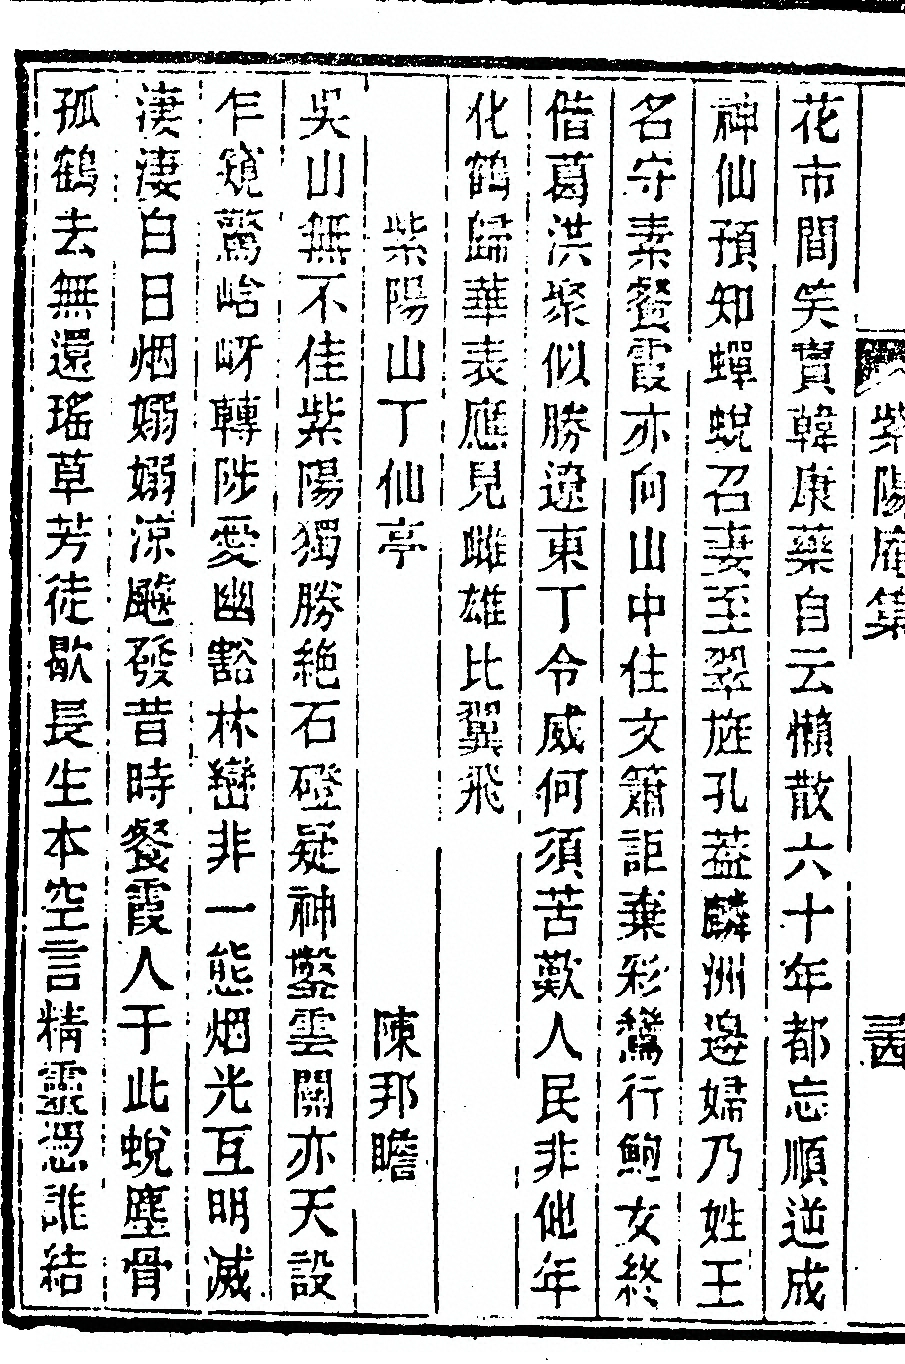 紫陽庵集
花市間矣賣韓康藥自云懶散六十年都忘順逆成
神仙預知蟬蛻召妻至翠旌孔蓋麟洲邊婦乃姓王
名守素餐霞亦向山中住文簫詎棄彩鸞行鮑女終
偕葛洪聚似勝遼東丁令威何須苦歎人民非他年
化鶴歸華表應見雌雄比翼飛
紫陽山丁仙亭 陳邦瞻
吳山無不佳紫陽獨勝絶石磴疑神鑿雲關亦天設
乍窺驚峆岈轉陟愛幽豁林巒非一態烟光互明滅
淒淒白日烟嫋嫋涼颸發昔時餐霞人于此蛻塵骨
孤鶴去無還瑤草芳徒歇長生本空言精靈憑誰結